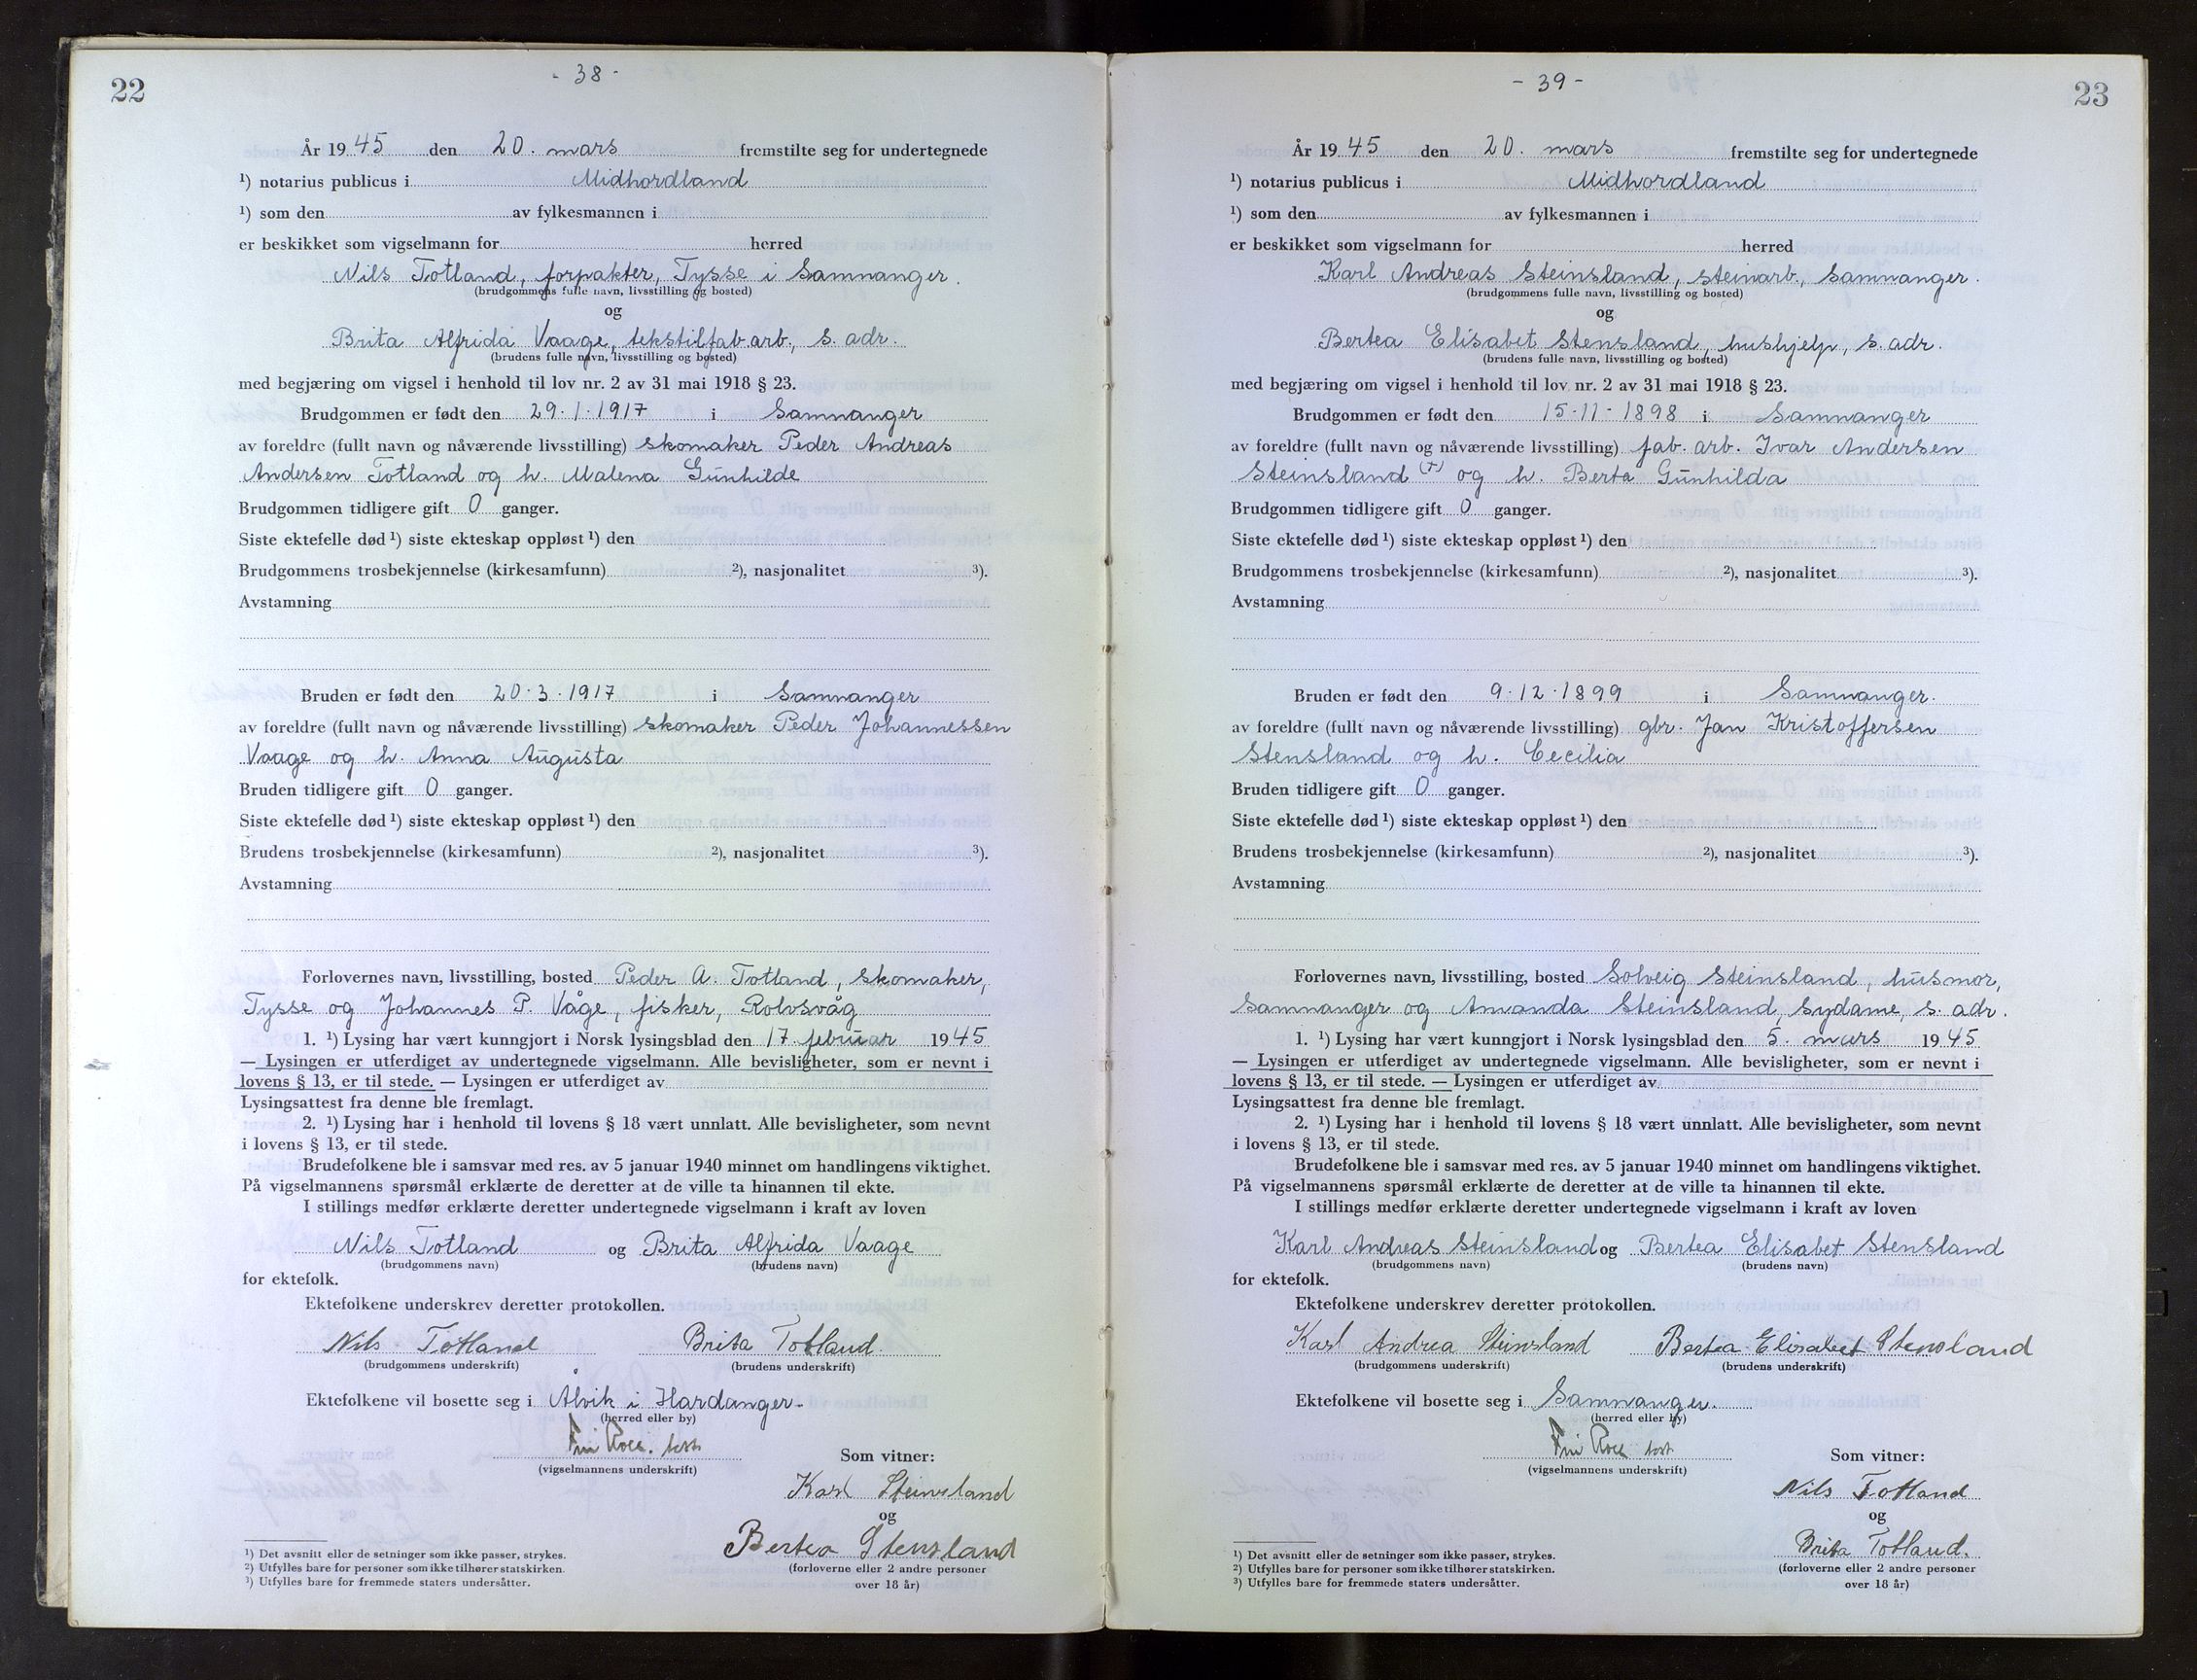 22
- 38 -
År 1945 den 20. mars fremstilte seg for undertegnede
¹) notarius publicus i Midhordland
¹) som den av fylkesmannen i
er beskikket som vigselmann for herred
Nils Totland, forpakter, Tysse i Samnanger.
(brudgommens fulle navn, livsstilling og bosted)
og
Brita Alfrida Vaage, tekstilfab.arb., s. adr.
(brudens fulle navn, livsstilling og bosted)
med begjæring om vigsel i henhold til lov nr. 2 av 31 mai 1918 § 23.
Brudgommen er født den 29.1.1917 i Samnanger
av foreldre (fullt navn og nåværende livsstilling) skomaker Peder Andreas
Andersen Totland og h. Malena Gunhilde
Brudgommen tidligere gift 0 ganger.
Siste ektefelle død ¹) siste ekteskap oppløst ¹) den
Brudgommens trosbekjennelse (kirkesamfunn) ²), nasjonalitet ³).
Avstamning
Bruden er født den 20.3.1917 i Samnanger
av foreldre (fullt navn og nåværende livsstilling) skomaker Peder Johannessen
Vaage og h. Anna Augusta
Bruden tidligere gift 0 ganger.
Siste ektefelle død ¹) siste ekteskap oppløst ¹) den
Brudens trosbekjennelse (kirkesamfunn) ²), nasjonalitet ³).
Avstamning
Forlovernes navn, livsstilling, bosted Peder A. Totland, skomaker,
Tysse og Johannes P. Våge, fisker, Rolvsvåg
1. ¹) Lysing har vært kunngjort i Norsk lysingsblad den 17. februar 1945
— Lysingen er utferdiget av undertegnede vigselmann. Alle bevisligheter, som er nevnt i
lovens § 13, er til stede. — Lysingen er utferdiget av
Lysingsattest fra denne ble fremlagt.
2. ¹) Lysing har i henhold til lovens § 18 vært unnlatt. Alle bevisligheter, som nevnt
i lovens § 13, er til stede.
Brudefolkene ble i samsvar med res. av 5 januar 1940 minnet om handlingens viktighet.
På vigselmannens spørsmål erklærte de deretter at de ville ta hinannen til ekte.
I stillings medfør erklærte deretter undertegnede vigselmann i kraft av loven
Nils Totland og Brita Alfrida Vaage
(brudgommens navn) (brudens navn)
for ektefolk.
Ektefolkene underskrev deretter protokollen.
Nils Totland Brita Totland.
(brudgommens underskrift) (brudens underskrift)
Ektefolkene vil bosette seg i Ålvik i Hardanger.
(herred eller by)
(vigselmannens underskrift)
Som vitner:
Karl Steinsland
og
Bertea Stensland
(forloverne eller 2 andre personer
over 18 år)
¹) Det avsnitt eller de setninger som ikke passer, strykes.
²) Utfylles bare for personer som ikke tilhører statskirken.
³) Utfylles bare for fremmede staters undersåtter.
23
- 39 -
År 1945 den 20. mars fremstilte seg for undertegnede
¹) notarius publicus i Midhordland
¹) som den av fylkesmannen i
er beskikket som vigselmann for herred
Karl Andreas Steinsland, steinarb., Samnanger.
(brudgommens fulle navn, livsstilling og bosted)
og
Bertea Elisabet Stensland, hushjelp, s. adr.
(brudens fulle navn, livsstilling og bosted)
med begjæring om vigsel i henhold til lov nr. 2 av 31 mai 1918 § 23.
Brudgommen er født den 15-11-1898 i Samnanger
av foreldre (fullt navn og nåværende livsstilling) fab. arb. Ivar Andersen
Steinsland (†) og h. Berta Gunhilda
Brudgommen tidligere gift 0 ganger.
Siste ektefelle død ¹) siste ekteskap oppløst ¹) den
Brudgommens trosbekjennelse (kirkesamfunn) ²), nasjonalitet ³).
Avstamning
Bruden er født den 9.12.1899 i Samnanger.
av foreldre (fullt navn og nåværende livsstilling) gbr. Jan Kristoffersen
Stensland og h. Cecilia
Bruden tidligere gift 0 ganger.
Siste ektefelle død ¹) siste ekteskap oppløst ¹) den
Brudens trosbekjennelse (kirkesamfunn) ²), nasjonalitet ³).
Avstamning
Forlovernes navn, livsstilling, bosted Solveig Steinsland, husmor,
Samnanger og Amanda Steinsland, sydame, s. adr.
1. ¹) Lysing har vært kunngjort i Norsk lysingsblad den 5. mars 1945
— Lysingen er utferdiget av undertegnede vigselmann. Alle bevisligheter, som er nevnt i
lovens § 13, er til stede. — Lysingen er utferdiget av
Lysingsattest fra denne ble fremlagt.
2. ¹) Lysing har i henhold til lovens § 18 vært unnlatt. Alle bevisligheter, som nevnt
i lovens § 13, er til stede.
Brudefolkene ble i samsvar med res. av 5 januar 1940 minnet om handlingens viktighet.
På vigselmannens spørsmål erklærte de deretter at de ville ta hinannen til ekte.
I stillings medfør erklærte deretter undertegnede vigselmann i kraft av loven
Karl Andreas Steinsland og Bertea Elisabet Stensland
(brudgommens navn) (brudens navn)
for ektefolk.
Ektefolkene underskrev deretter protokollen.
Karl Andrea Steinsland Bertea Elisabet Stensland
(brudgommens underskrift) (brudens underskrift)
Ektefolkene vil bosette seg i Samnanger.
(herred eller by)
(vigselmannens underskrift)
Som vitner:
Nils Totland
og
Brita Totland.
(forloverne eller 2 andre personer
over 18 år)
¹) Det avsnitt eller de setninger som ikke passer, strykes.
²) Utfylles bare for personer som ikke tilhører statskirken.
³) Utfylles bare for fremmede staters undersåtter.